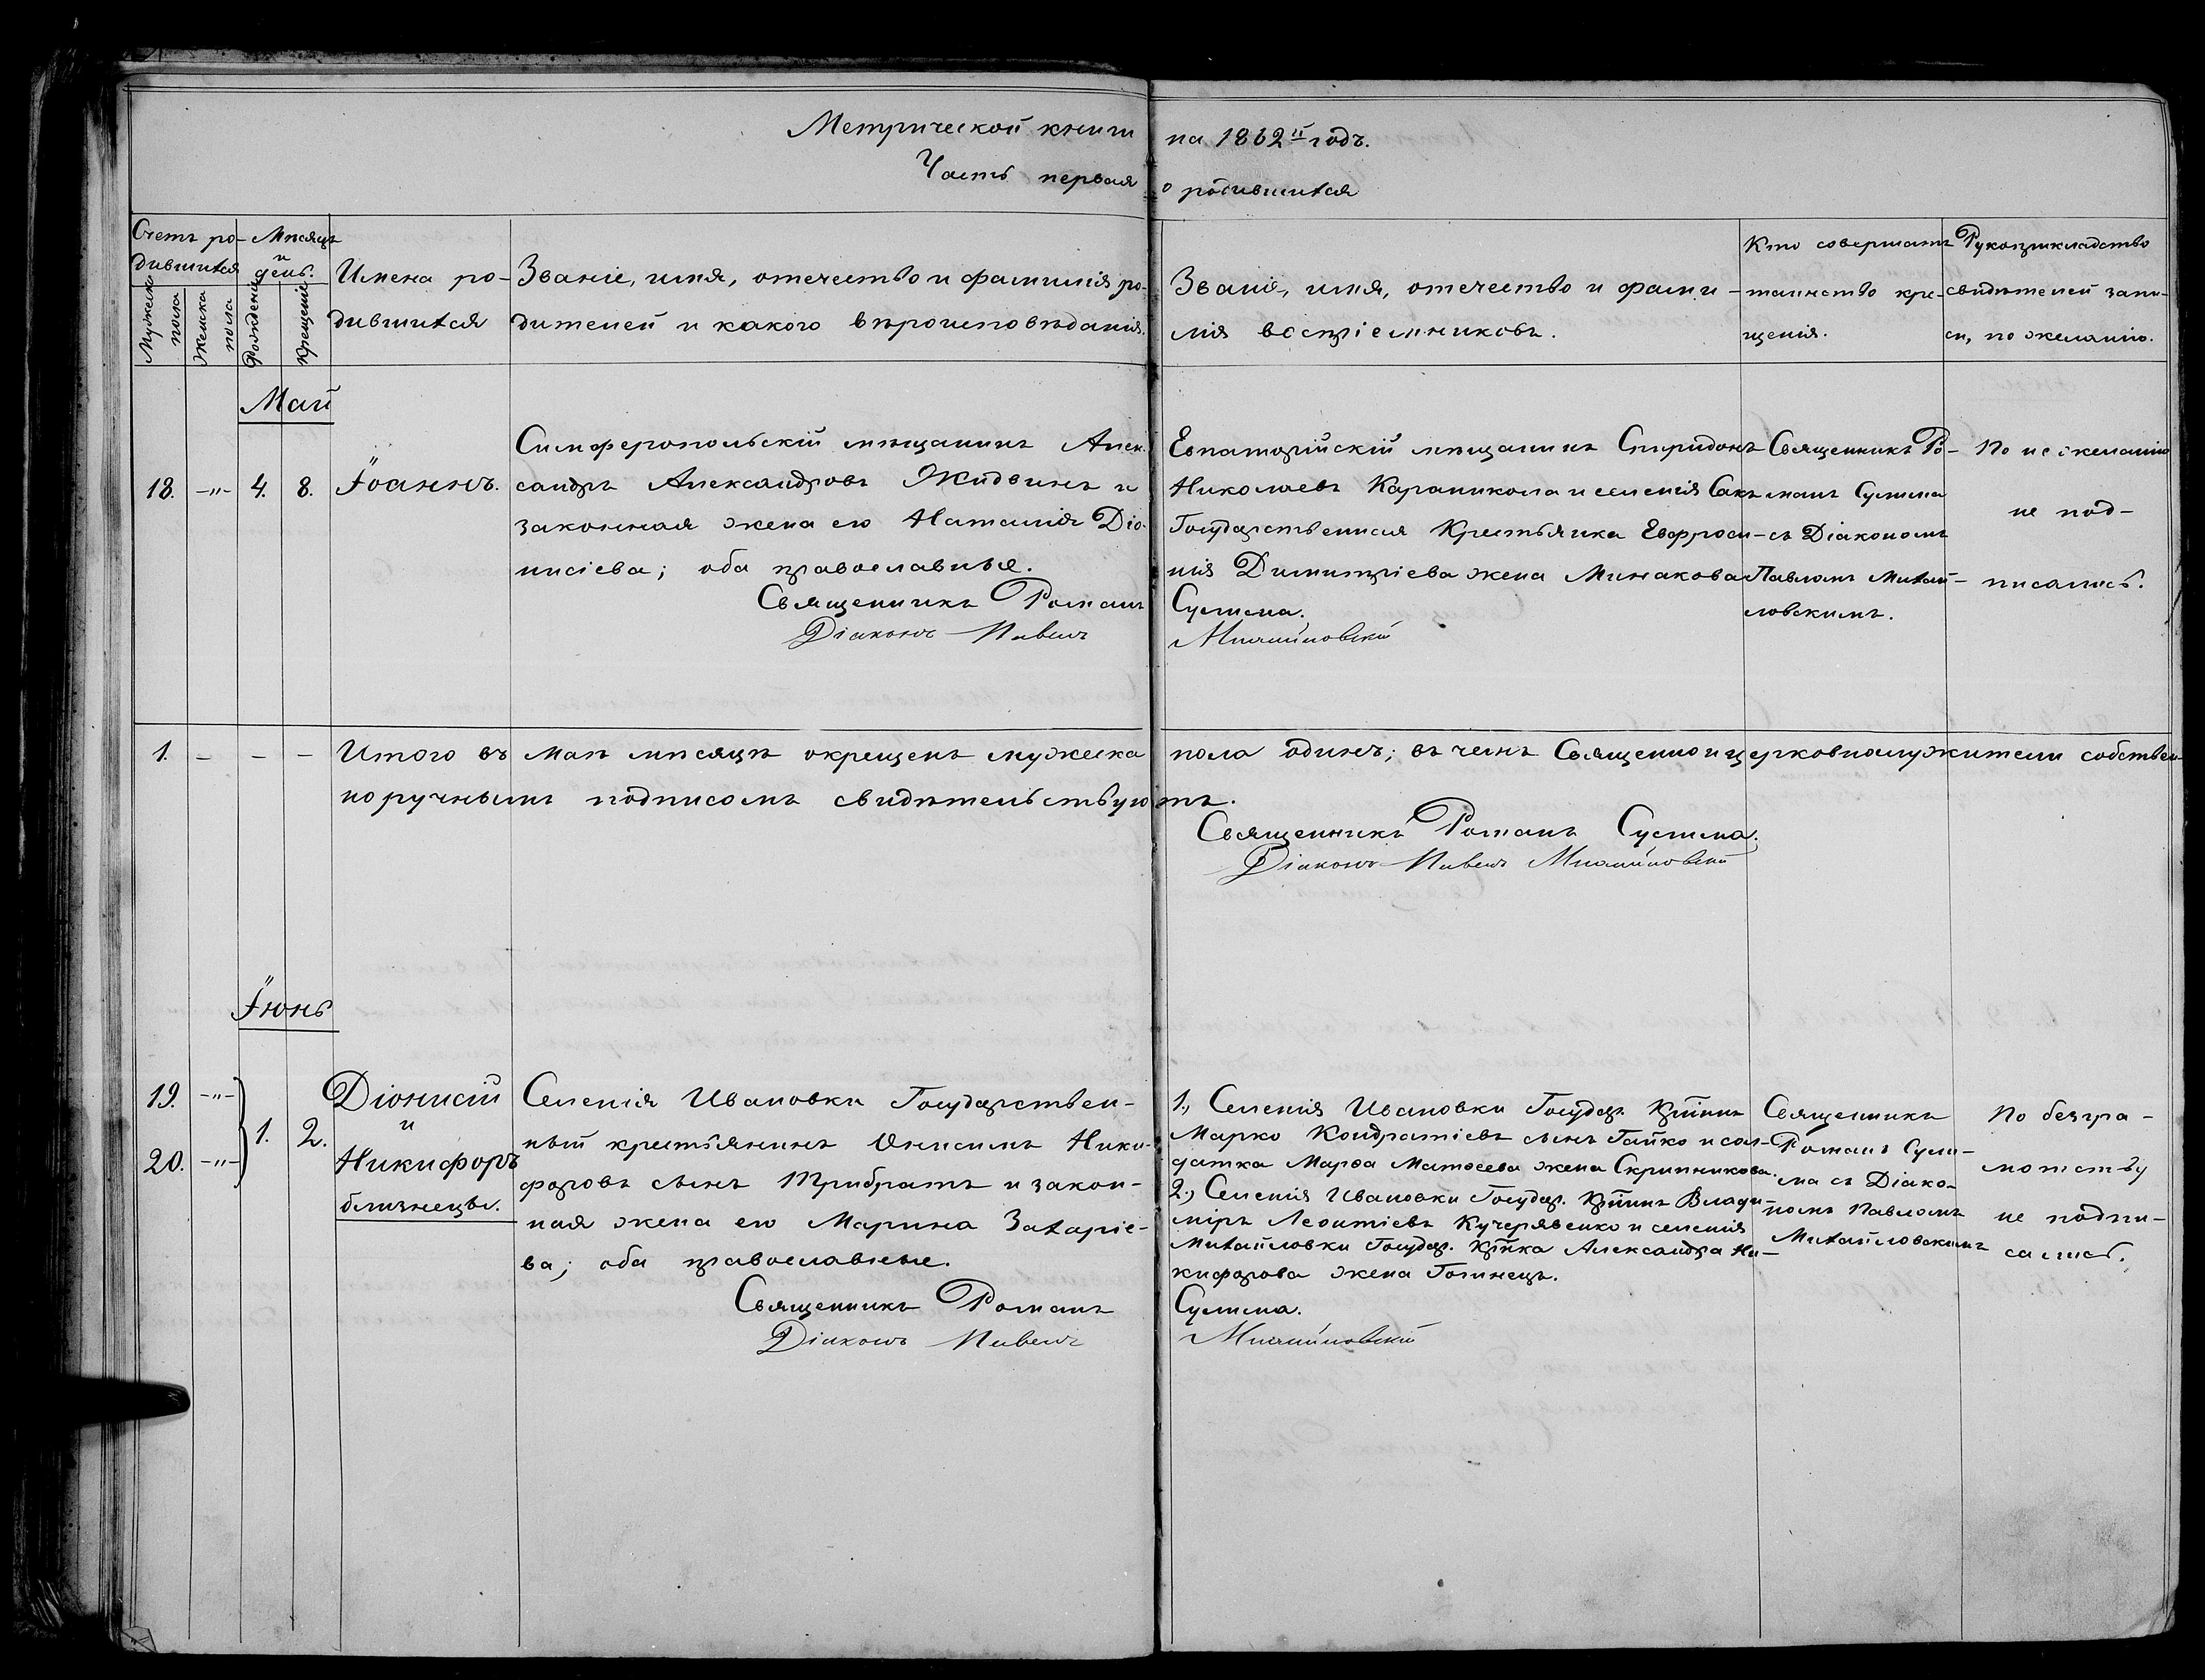 Метрической книги на 1862й годъ.
Часть первая о родившихся
Счетъ ро-
дившихся
Мужеска
пола
Женска
пола
Мѣсяцъ
и
день.
Рожденія
Крещенія
Имена ро-
дившихся
Званіе, имя, отечество и фамилія ро-
дителей и какого вѣроисповѣданія.
Званіе, имя, отечество и фами-
лія воспріемниковъ.
Кто совершалъ
таинство кре-
щенія.
Рукоприкладство
свидѣтелей запи-
си, по желанію.
Май
18. -"- 4. 8. Іоаннъ.
Симферопольскій мѣщанинъ Алек-
сандръ Александровъ Жидвинъ и
законная жена его Наталія Діо-
нисіева; оба православные.
Священникъ Романъ
Діаконъ Павелъ
Евпаторійскій мѣщанинъ Спиридонъ
Николаевъ Караникола и селенія Сакъ
Государственная Крестьянка Евфроси-
нія Димитріева жена Минакова
Сулима.
Михайловскій
Священникъ Ро-
манъ Сулима
съ Діакономъ
Павломъ Михай-
ловскимъ.
По нежеланію
не под-
писались.
1. - - - Итого въ маѣ мѣсяцѣ окрещенъ мужеска пола одинъ; въ чемъ Священно и церковнослужители собствен-
норучнымъ подписомъ свидѣтельствуютъ.
Священникъ Романъ Сулима.
Діаконъ Павелъ Михайловскій
Іюнь
19. -"-
20. -"-
1. 2.
Діонисій
и
Никифоръ
близнецы.
Селенія Ивановки Государствен-
ный крестьянинъ Онисимъ Ники-
форовъ сынъ Трибратъ и закон-
ная жена его Марина Захаріе-
ва; оба православные.
Священникъ Романъ
Діаконъ Павелъ
1., Селенія Ивановки Государ. Крѣнинъ
Марко Кондратіевъ сынъ Гайко и сол-
датка Марѳа Матѳеева жена Скрипникова.
2., Селенія Ивановки Государ. Влади-
міръ Леонтіевъ Кучерявенко и селенія
Михайловки Государ. Александра Ни-
кифорова жена Голинецъ.
Сулима.
Михайловскій
Священникъ
Романъ Сули-
ма съ Діако-
номъ Павломъ
Михайловскимъ
По безгра-
мотству
не подпи-
сались.